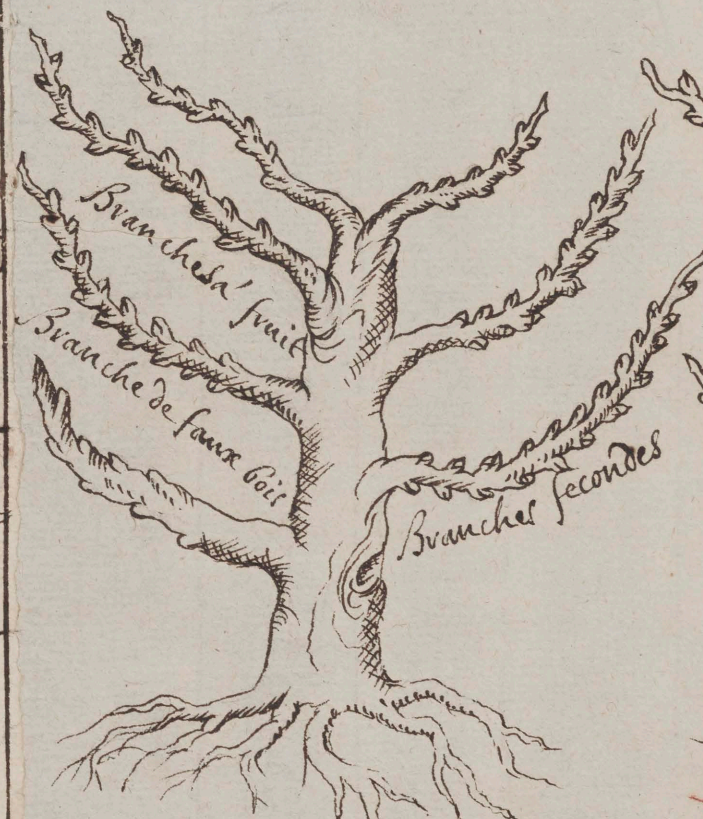 Branches a' fruit
Branche de faux bois
Branches secondes